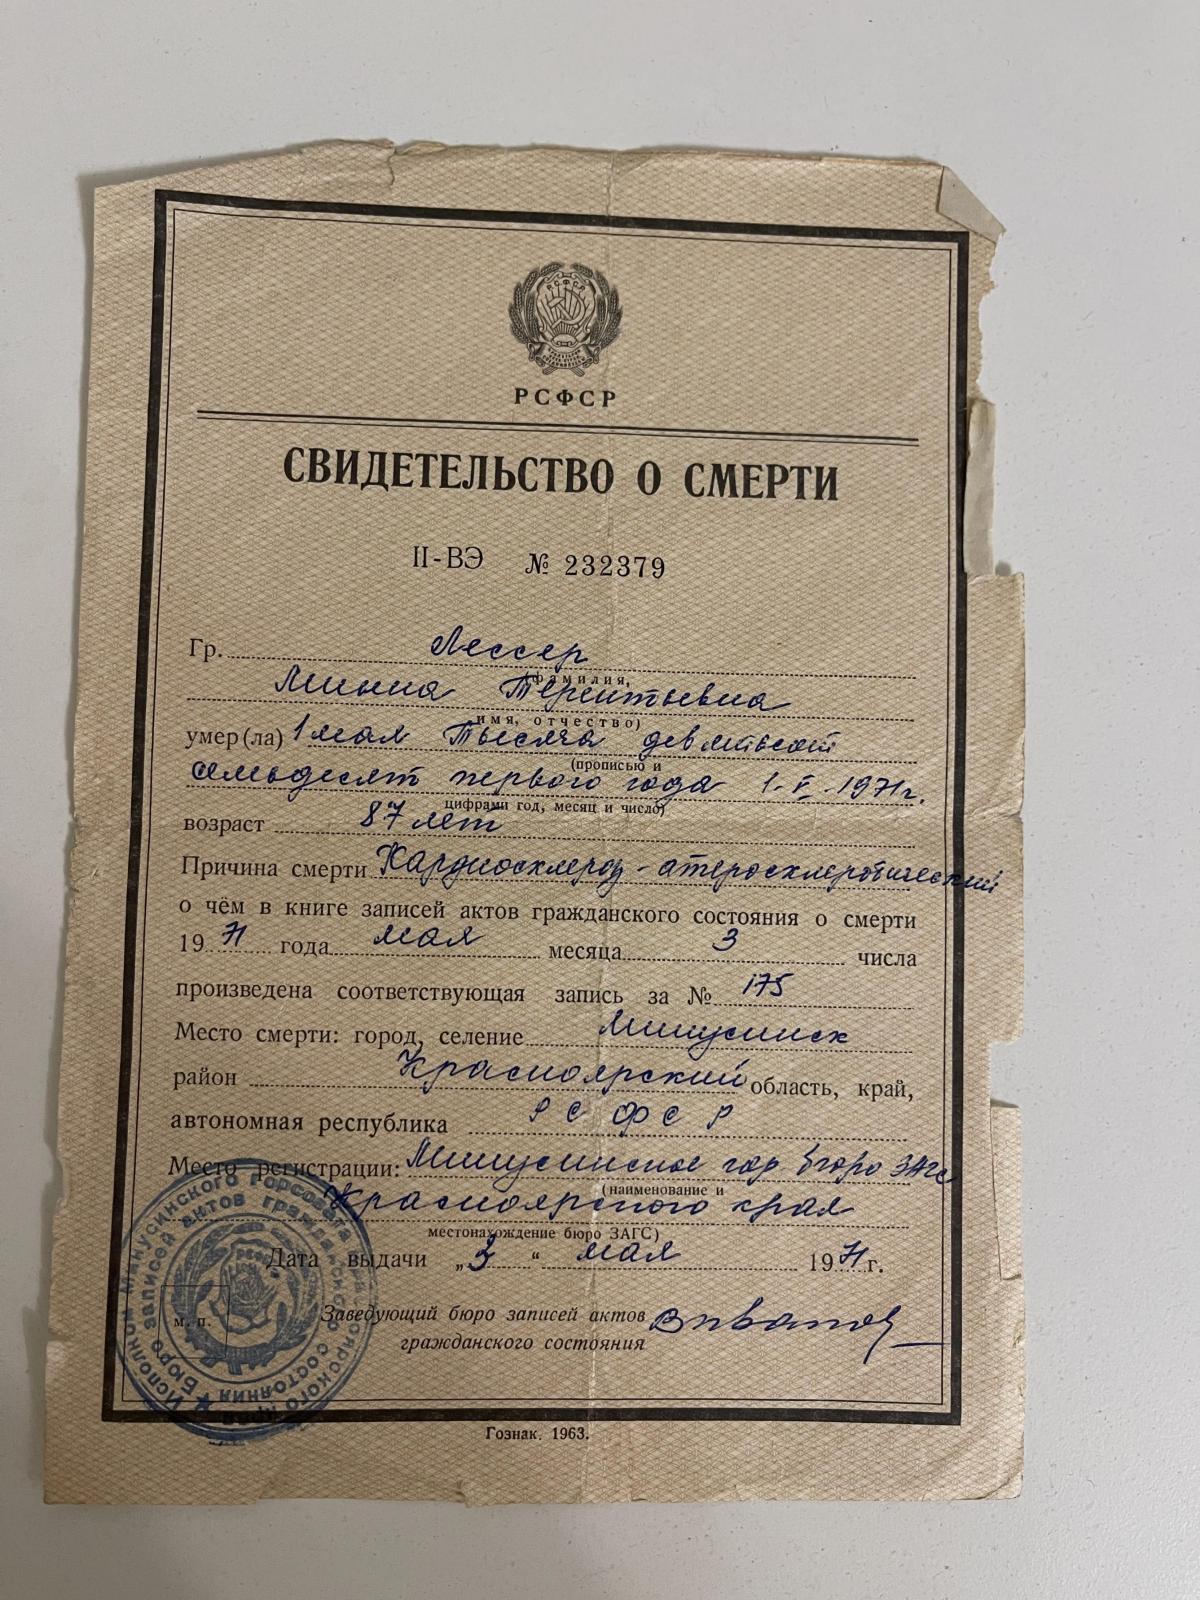 РСФСР
РСФСР
СВИДЕТЕЛЬСТВО О СМЕРТИ
II-ВЭ № 232379
Гр. Лессер
(фамилия,
Минна Терентьевна
имя, отчество)
умер(ла) 1 мая Тысяча девятьсот
(прописью и
семьдесят первого года 1-V-1971г.
цифрами год, месяц и число)
возраст 87 лет
Причина смерти Кардиосклероз - атеросклеротический
о чём в книге записей актов гражданского состояния о смерти
1971 года мая месяца 3 числа
произведена соответствующая запись за № 175
Место смерти: город, селение Минусинск
район Красноярский область, край,
автономная республика РСФСР
Место регистрации: Минусинское гор бюро ЗАГС
(наименование и
Красноярского края
местонахождение бюро ЗАГС)
Дата выдачи „3“ мая 1971г.
м. п.
Заведующий бюро записей актов
гражданского состояния
Исполком Минусинского Горсовета Красноярского края
Бюро записей актов гражданского состояния
Гознак. 1963.